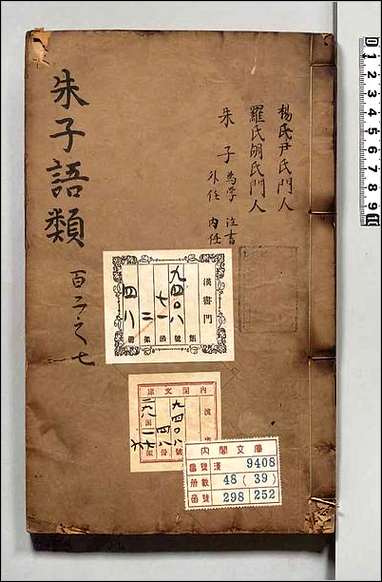 楊氏尹氏門人
羅氏胡氏門人
朱子 為学 注書
外任 内任
朱子語類
百二之七
漢書門
類
九四〇八號
七一函
二架
四八冊
内閣文庫
漢書
九四〇八號
四八冊
内閣文庫
番號 漢 9408
冊數 48 (39)
函號 298 252
1 2 3 4 5 6 7 8 9 10